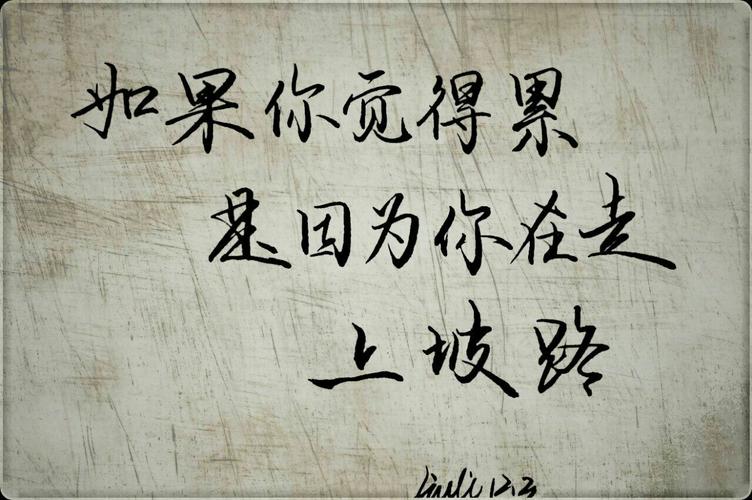 如果你觉得累
是因为你在走
上坡路